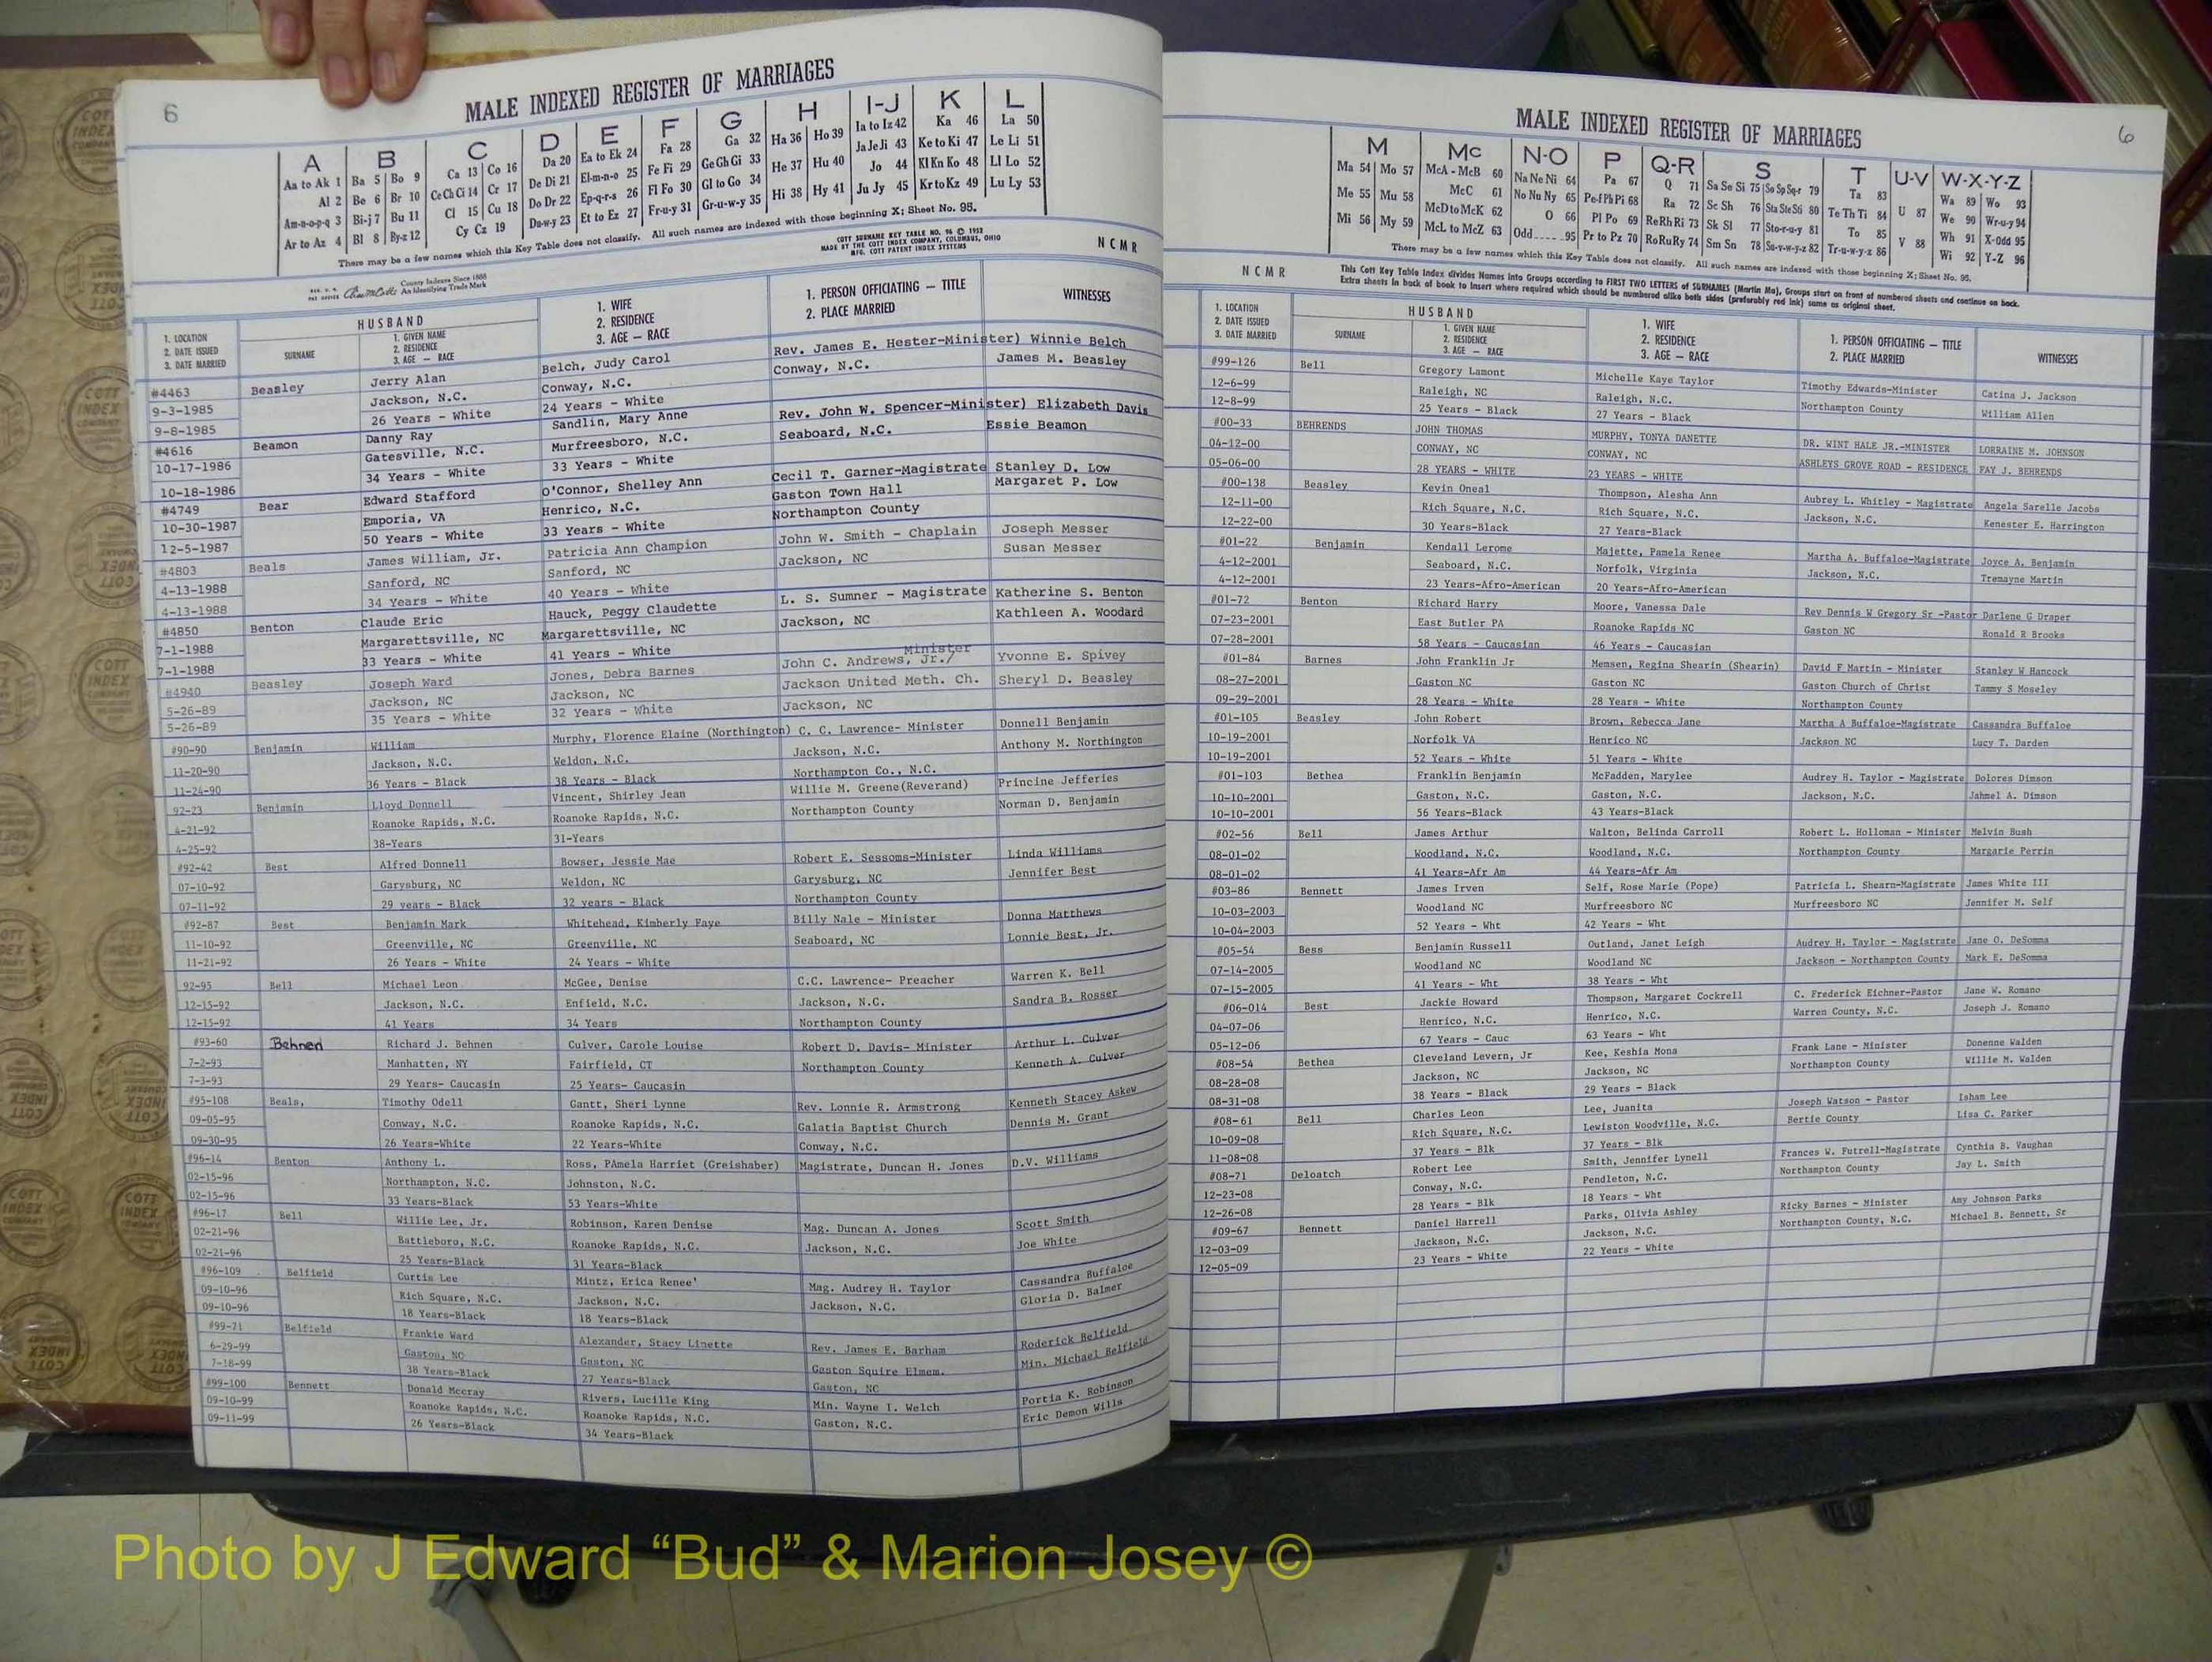 6
MALE INDEXED REGISTER OF MARRIAGES
A B C D E F G H I-J K L
Aa to Ak 1 Ba 5 Bo 9 Ca 13 Co 16 Da 20 Ea to Ek 24 Fa 28 Ga 32 Ha 36 Ho 39 Ia to Iz 42 Ka 46 La 50
Al 2 Be 6 Br 10 Ce Ch Ci 14 Cr 17 De Di 21 El-m-n-o 25 Fe Fi 29 Ge Gh Gi 33 He 37 Hu 40 Ja Je Ji 43 Ke to Ki 47 Le Li 51
Am-n-o-p-q 3 Bi-j 7 Bu 11 Cl 15 Cu 18 Do Dr 22 Ep-q-r-s 26 Fl Fo 30 Gl to Go 34 Hi 38 Hy 41 Jo 44 Kl Kn Ko 48 Ll Lo 52
Ar to Az 4 Bl 8 By-z 12 Cy Cz 19 Du-w-y 23 Et to Ez 27 Fr-u-y 31 Gr-u-w-y 35 Ju Jy 45 Kr to Kz 49 Lu Ly 53
There may be a few names which this Key Table does not classify. All such names are indexed with those beginning X; Sheet No. 95.
COTT SURNAME KEY TABLE NO. 96 © 1952
MADE BY THE COTT INDEX COMPANY, COLUMBUS, OHIO
MFG. COTT PATENT INDEX SYSTEMS
NCMR
County Indexes Since 1888
An Identifying Trade Mark
1. LOCATION
2. DATE ISSUED
3. DATE MARRIED
HUSBAND
SURNAME
1. GIVEN NAME
2. RESIDENCE
3. AGE — RACE
1. WIFE
2. RESIDENCE
3. AGE — RACE
1. PERSON OFFICIATING — TITLE
2. PLACE MARRIED
WITNESSES
#4463 Beasley Jerry Alan Belch, Judy Carol Rev. James E. Hester-Minister) Winnie Belch
9-3-1985 Jackson, N.C. Conway, N.C. Conway, N.C. James M. Beasley
9-8-1985 26 Years - White 24 Years - White
#4616 Beamon Danny Ray Sandlin, Mary Anne Rev. John W. Spencer-Minister) Elizabeth Davis
10-17-1986 Gatesville, N.C. Murfreesboro, N.C. Seaboard, N.C. Essie Beamon
10-18-1986 34 Years - White 33 Years - White
#4749 Bear Edward Stafford O'Connor, Shelley Ann Cecil T. Garner-Magistrate Stanley D. Low
10-30-1987 Emporia, VA Henrico, N.C. Gaston Town Hall Margaret P. Low
12-5-1987 50 Years - White 33 Years - White Northampton County
#4803 Beals James William, Jr. Patricia Ann Champion John W. Smith - Chaplain Joseph Messer
4-13-1988 Sanford, NC Sanford, NC Jackson, NC Susan Messer
4-13-1988 34 Years - White 40 Years - White
#4850 Benton Claude Eric Hauck, Peggy Claudette L. S. Sumner - Magistrate Katherine S. Benton
7-1-1988 Margarettsville, NC Margarettsville, NC Jackson, NC Kathleen A. Woodard
7-1-1988 33 Years - White 41 Years - White
#4940 Beasley Joseph Ward Jones, Debra Barnes John C. Andrews, Jr./ Minister Yvonne E. Spivey
5-26-89 Jackson, NC Jackson, NC Jackson United Meth. Ch. Sheryl D. Beasley
5-26-89 35 Years - White 32 Years - White Jackson, NC
#90-90 Benjamin William Murphy, Florence Elaine (Northington) C. C. Lawrence- Minister Donnell Benjamin
11-20-90 Jackson, N.C. Weldon, N.C. Jackson, N.C. Anthony M. Northington
11-24-90 36 Years - Black 38 Years - Black Northampton Co., N.C.
92-23 Benjamin Lloyd Donnell Vincent, Shirley Jean Willie M. Greene(Reverand) Princine Jefferies
4-21-92 Roanoke Rapids, N.C. Roanoke Rapids, N.C. Northampton County Norman D. Benjamin
4-25-92 38-Years 31-Years
#92-42 Best Alfred Donnell Bowser, Jessie Mae Robert E. Sessoms-Minister Linda Williams
07-10-92 Garysburg, NC Weldon, NC Garysburg, NC Jennifer Best
07-11-92 29 years - Black 32 years - Black Northampton County
#92-87 Best Benjamin Mark Whitehead, Kimberly Faye Billy Nale - Minister Donna Matthews
11-10-92 Greenville, NC Greenville, NC Seaboard, NC Lonnie Best, Jr.
11-21-92 26 Years - White 24 Years - White
92-95 Bell Michael Leon McGee, Denise C.C. Lawrence- Preacher Warren K. Bell
12-15-92 Jackson, N.C. Enfield, N.C. Jackson, N.C. Sandra B. Rosser
12-15-92 41 Years 34 Years Northampton County
#93-60 Behnen Richard J. Behnen Culver, Carole Louise Robert D. Davis- Minister Arthur L. Culver
7-2-93 Manhatten, NY Fairfield, CT Northampton County Kenneth A. Culver
7-3-93 29 Years- Caucasin 25 Years- Caucasin
#95-108 Beals, Timothy Odell Gantt, Sheri Lynne Rev. Lonnie R. Armstrong Kenneth Stacey Askew
09-05-95 Conway, N.C. Roanoke Rapids, N.C. Galatia Baptist Church Dennis M. Grant
09-30-95 26 Years-White 22 Years-White Conway, N.C.
#96-14 Benton Anthony L. Ross, PAmela Harriet (Greishaber) Magistrate, Duncan H. Jones D.V. Williams
02-15-96 Northampton, N.C. Johnston, N.C.
02-15-96 33 Years-Black 53 Years-White
#96-17 Bell Willie Lee, Jr. Robinson, Karen Denise Mag. Duncan A. Jones Scott Smith
02-21-96 Battleboro, N.C. Roanoke Rapids, N.C. Jackson, N.C. Joe White
02-21-96 25 Years-Black 31 Years-Black
#96-109 Belfield Curtis Lee Mintz, Erica Renee' Mag. Audrey H. Taylor Cassandra Buffaloe
09-10-96 Rich Square, N.C. Jackson, N.C. Jackson, N.C. Gloria D. Balmer
09-10-96 18 Years-Black 18 Years-Black
#99-71 Belfield Frankie Ward Alexander, Stacy Linette Rev. James E. Barham Roderick Belfield
6-29-99 Gaston, NC Gaston, NC Gaston Squire Elmem. Min. Michael Belfield
7-18-99 38 Years-Black 27 Years-Black Gaston, NC
#99-100 Bennett Donald Mccray Rivers, Lucille King Min. Wayne I. Welch Portia K. Robinson
09-10-99 Roanoke Rapids, N.C. Roanoke Rapids, N.C. Gaston, N.C. Eric Demon Wills
09-11-99 26 Years-Black 34 Years-Black
MALE INDEXED REGISTER OF MARRIAGES
6
M Mc N-O P Q-R S T U-V W-X-Y-Z
Ma 54 Mo 57 McA - McB 60 Na Ne Ni 64 Pa 67 Q 71 Sa Se Si 75 So Sp Sq-r 79 Ta 83 Wa 89 Wo 93
Me 55 Mu 58 McC 61 No Nu Ny 65 Pe-f Ph Pi 68 Ra 72 Sc Sh 76 Sta Ste Sti 80 Te Th Ti 84 U 87 We 90 Wr-u-y 94
Mi 56 My 59 McD to McK 62 O 66 Pl Po 69 Re Rh Ri 73 Sk Sl 77 Sto-r-u-y 81 To 85 Wh 91 X-Odd 95
McL to McZ 63 Odd.....95 Pr to Pz 70 Ro Ru Ry 74 Sm Sn 78 Su-v-w-y-z 82 Tr-u-w-y-z 86 V 88 Wi 92 Y-Z 96
There may be a few names which this Key Table does not classify. All such names are indexed with those beginning X; Sheet No. 95.
NCMR
This Cott Key Table Index divides Names into Groups according to FIRST TWO LETTERS of SURNAMES (Martin Ma), Groups start on front of numbered sheets and continue on back.
Extra sheets in back of book to insert where required which should be numbered alike both sides (preferably red ink) same as original sheet.
1. LOCATION
2. DATE ISSUED
3. DATE MARRIED
HUSBAND
SURNAME
1. GIVEN NAME
2. RESIDENCE
3. AGE — RACE
1. WIFE
2. RESIDENCE
3. AGE — RACE
1. PERSON OFFICIATING — TITLE
2. PLACE MARRIED
WITNESSES
#99-126 Bell Gregory Lamont Michelle Kaye Taylor Timothy Edwards-Minister Catina J. Jackson
12-6-99 Raleigh, NC Raleigh, N.C. Northampton County William Allen
12-8-99 25 Years - Black 27 Years - Black
#00-33 BEHRENDS JOHN THOMAS MURPHY, TONYA DANETTE DR. WINT HALE JR.-MINISTER LORRAINE M. JOHNSON
04-12-00 CONWAY, NC CONWAY, NC ASHLEYS GROVE ROAD - RESIDENCE FAY J. BEHRENDS
05-06-00 28 YEARS - WHITE 23 YEARS - WHITE
#00-138 Beasley Kevin Oneal Thompson, Alesha Ann Aubrey L. Whitley - Magistrate Angela Sarelle Jacobs
12-11-00 Rich Square, N.C. Rich Square, N.C. Jackson, N.C. Kenester E. Harrington
12-22-00 30 Years-Black 27 Years-Black
#01-22 Benjamin Kendall Lerome Majette, Pamela Renee Martha A. Buffaloe-Magistrate Joyce A. Benjamin
4-12-2001 Seaboard, N.C. Norfolk, Virginia Jackson, N.C. Tremayne Martin
4-12-2001 23 Years-Afro-American 20 Years-Afro-American
#01-72 Benton Richard Harry Moore, Vanessa Dale Rev Dennis W Gregory Sr -Pastor Darlene G Draper
07-23-2001 East Butler PA Roanoke Rapids NC Gaston NC Ronald R Brooks
07-28-2001 58 Years - Caucasian 46 Years - Caucasian
#01-84 Barnes John Franklin Jr Memsen, Regina Shearin (Shearin) David F Martin - Minister Stanley W Hancock
08-27-2001 Gaston NC Gaston NC Gaston Church of Christ Tammy S Moseley
09-29-2001 28 Years - White 28 Years - White Northampton County
#01-105 Beasley John Robert Brown, Rebecca Jane Martha A Buffaloe-Magistrate Cassandra Buffaloe
10-19-2001 Norfolk VA Henrico NC Jackson NC Lucy T. Darden
10-19-2001 52 Years - White 51 Years - White
#01-103 Bethea Franklin Benjamin McFadden, Marylee Audrey H. Taylor - Magistrate Dolores Dimson
10-10-2001 Gaston, N.C. Gaston, N.C. Jackson, N.C. Jahmel A. Dimson
10-10-2001 56 Years-Black 43 Years-Black
#02-56 Bell James Arthur Walton, Belinda Carroll Robert L. Holloman - Minister Melvin Bush
08-01-02 Woodland, N.C. Woodland, N.C. Northampton County Margarie Perrin
08-01-02 41 Years-Afr Am 44 Years-Afr Am
#03-86 Bennett James Irven Self, Rose Marie (Pope) Patricia L. Shearn-Magistrate James White III
10-03-2003 Woodland NC Murfreesboro NC Murfreesboro NC Jennifer M. Self
10-04-2003 52 Years - Wht 42 Years - Wht
#05-54 Bess Benjamin Russell Outland, Janet Leigh Audrey H. Taylor - Magistrate Jane O. DeSomma
07-14-2005 Woodland NC Woodland NC Jackson - Northampton County Mark E. DeSomma
07-15-2005 41 Years - Wht 38 Years - Wht
#06-014 Best Jackie Howard Thompson, Margaret Cockrell C. Frederick Eichner-Pastor Jane W. Romano
04-07-06 Henrico, N.C. Henrico, N.C. Warren County, N.C. Joseph J. Romano
05-12-06 67 Years - Cauc 63 Years - Wht
#08-54 Bethea Cleveland Levern, Jr Kee, Keshia Mona Frank Lane - Minister Donenne Walden
08-28-08 Jackson, NC Jackson, NC Northampton County Willie M. Walden
08-31-08 38 Years - Black 29 Years - Black
#08-61 Bell Charles Leon Lee, Juanita Joseph Watson - Pastor Isham Lee
10-09-08 Rich Square, N.C. Lewiston Woodville, N.C. Bertie County Lisa C. Parker
11-08-08 37 Years - Blk 37 Years - Blk
#08-71 Deloatch Robert Lee Smith, Jennifer Lynell Frances W. Futrell-Magistrate Cynthia B. Vaughan
12-23-08 Conway, N.C. Pendleton, N.C. Northampton County Jay L. Smith
12-26-08 28 Years - Blk 18 Years - Wht
#09-67 Bennett Daniel Harrell Parks, Olivia Ashley Ricky Barnes - Minister Amy Johnson Parks
12-03-09 Jackson, N.C. Jackson, N.C. Northampton County, N.C. Michael B. Bennett, Sr
12-05-09 23 Years - White 22 Years - White
Photo by J Edward “Bud” & Marion Josey ©